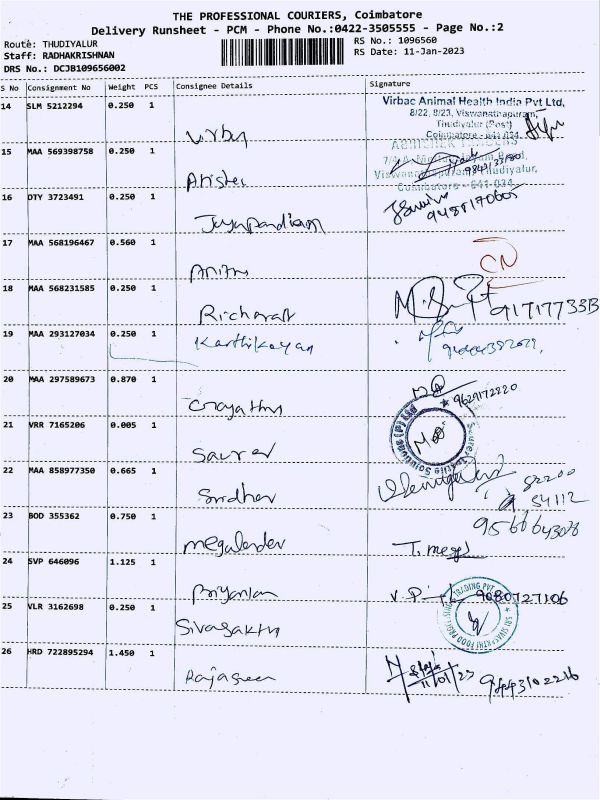 THE PROFESSIONAL COURIERS, Coimbatore
Delivery Runsheet - PCM - Phone No.:0422-3505555 - Page No.:2
Route: THUDIYALUR
Staff: RADHAKRISHNAN
DRS No.: DCJB109656002
RS No.: 1096560
RS Date: 11-Jan-2023
S No Consignment No Weight PCS Consignee Details Signature
14 SLM 5212294 0.250 1 Virbac
Virbac Animal Health India Pvt Ltd,
8/22, 8/23, Viswanathapuram,
Thudiyalur (Post)
Coimbatore - 641 034.
15 MAA 569398758 0.250 1
Viswanathapuram, Thudiyalur,
Coimbatore - 641-034.
16 DTY 3723491 0.250 1 Jayapandian
17 MAA 568196467 0.560 1 Anitha
CN
18 MAA 568231585 0.250 1
19 MAA 293127034 0.250 1 Karthikeyan
20 MAA 297589673 0.870 1 Gayathri
9629172220
21 VRR 7165206 0.005 1 Saurav
22 MAA 858977350 0.665 1 Sridhar
82200
54112
23 BOD 355362 0.750 1 megaladev
T. mega
24 SVP 646096 1.125 1
V. P. 9080727106
25 VLR 3162698 0.250 1 Sivasakthi
26 HRD 722895294 1.450 1
11/01/23 9443102216